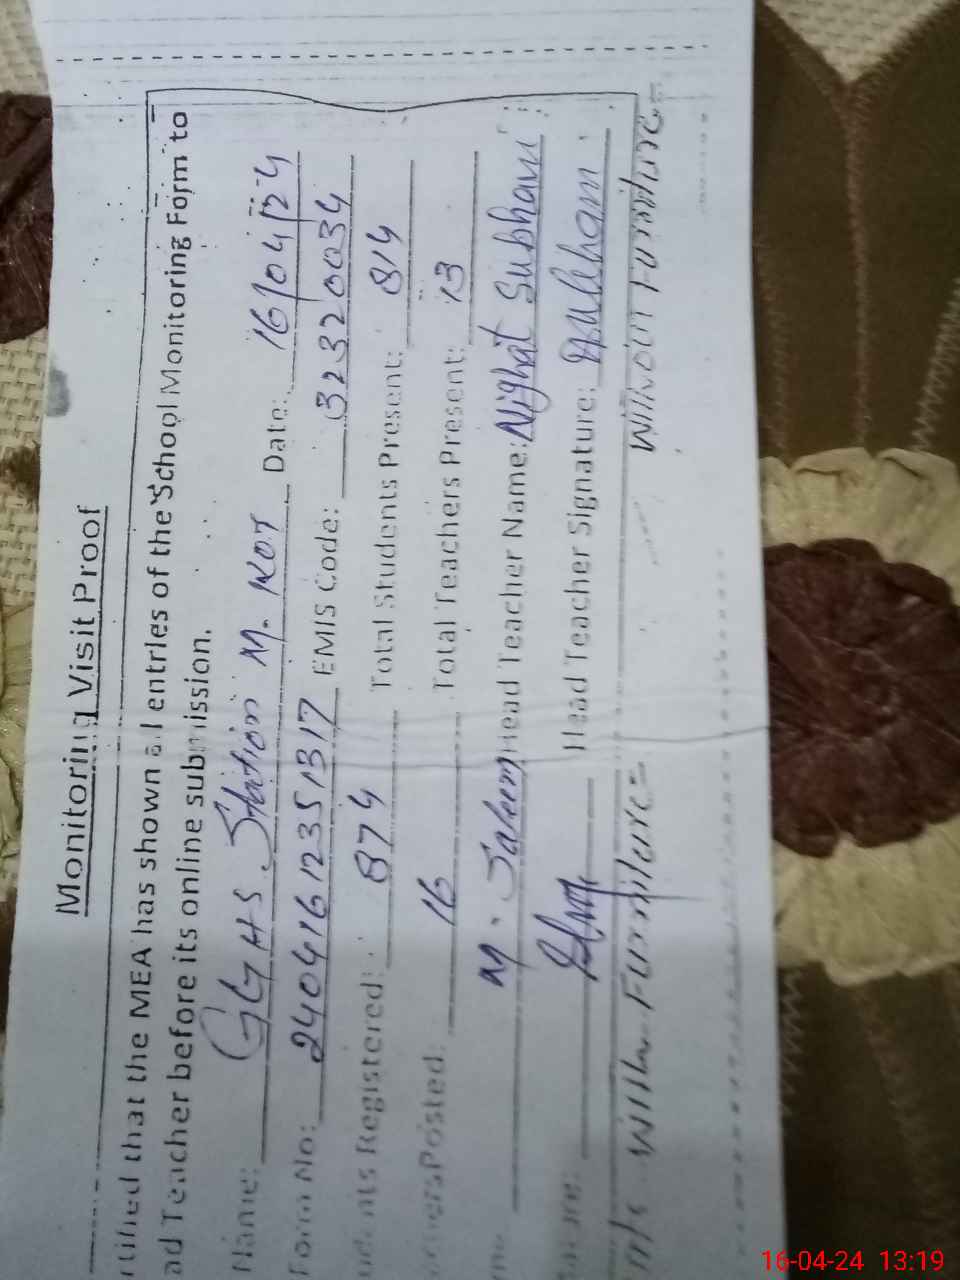 Monitoring Visit Proof
rtified that the MEA has shown all entries of the School Monitoring Form to
ad Teacher before its online submission.
Name: GGHS Station M. Kot Date: 16/04/24
Form No: 24041612351317 EMIS Code: 32320034
udents Registered: 874 Total Students Present: 814
achers Posted: 16 Total Teachers Present: 13
M. Saleem Head Teacher Name: Nighat Subhani
Head Teacher Signature:
With Furniture= Without Furniture=
16-04-24 13:19